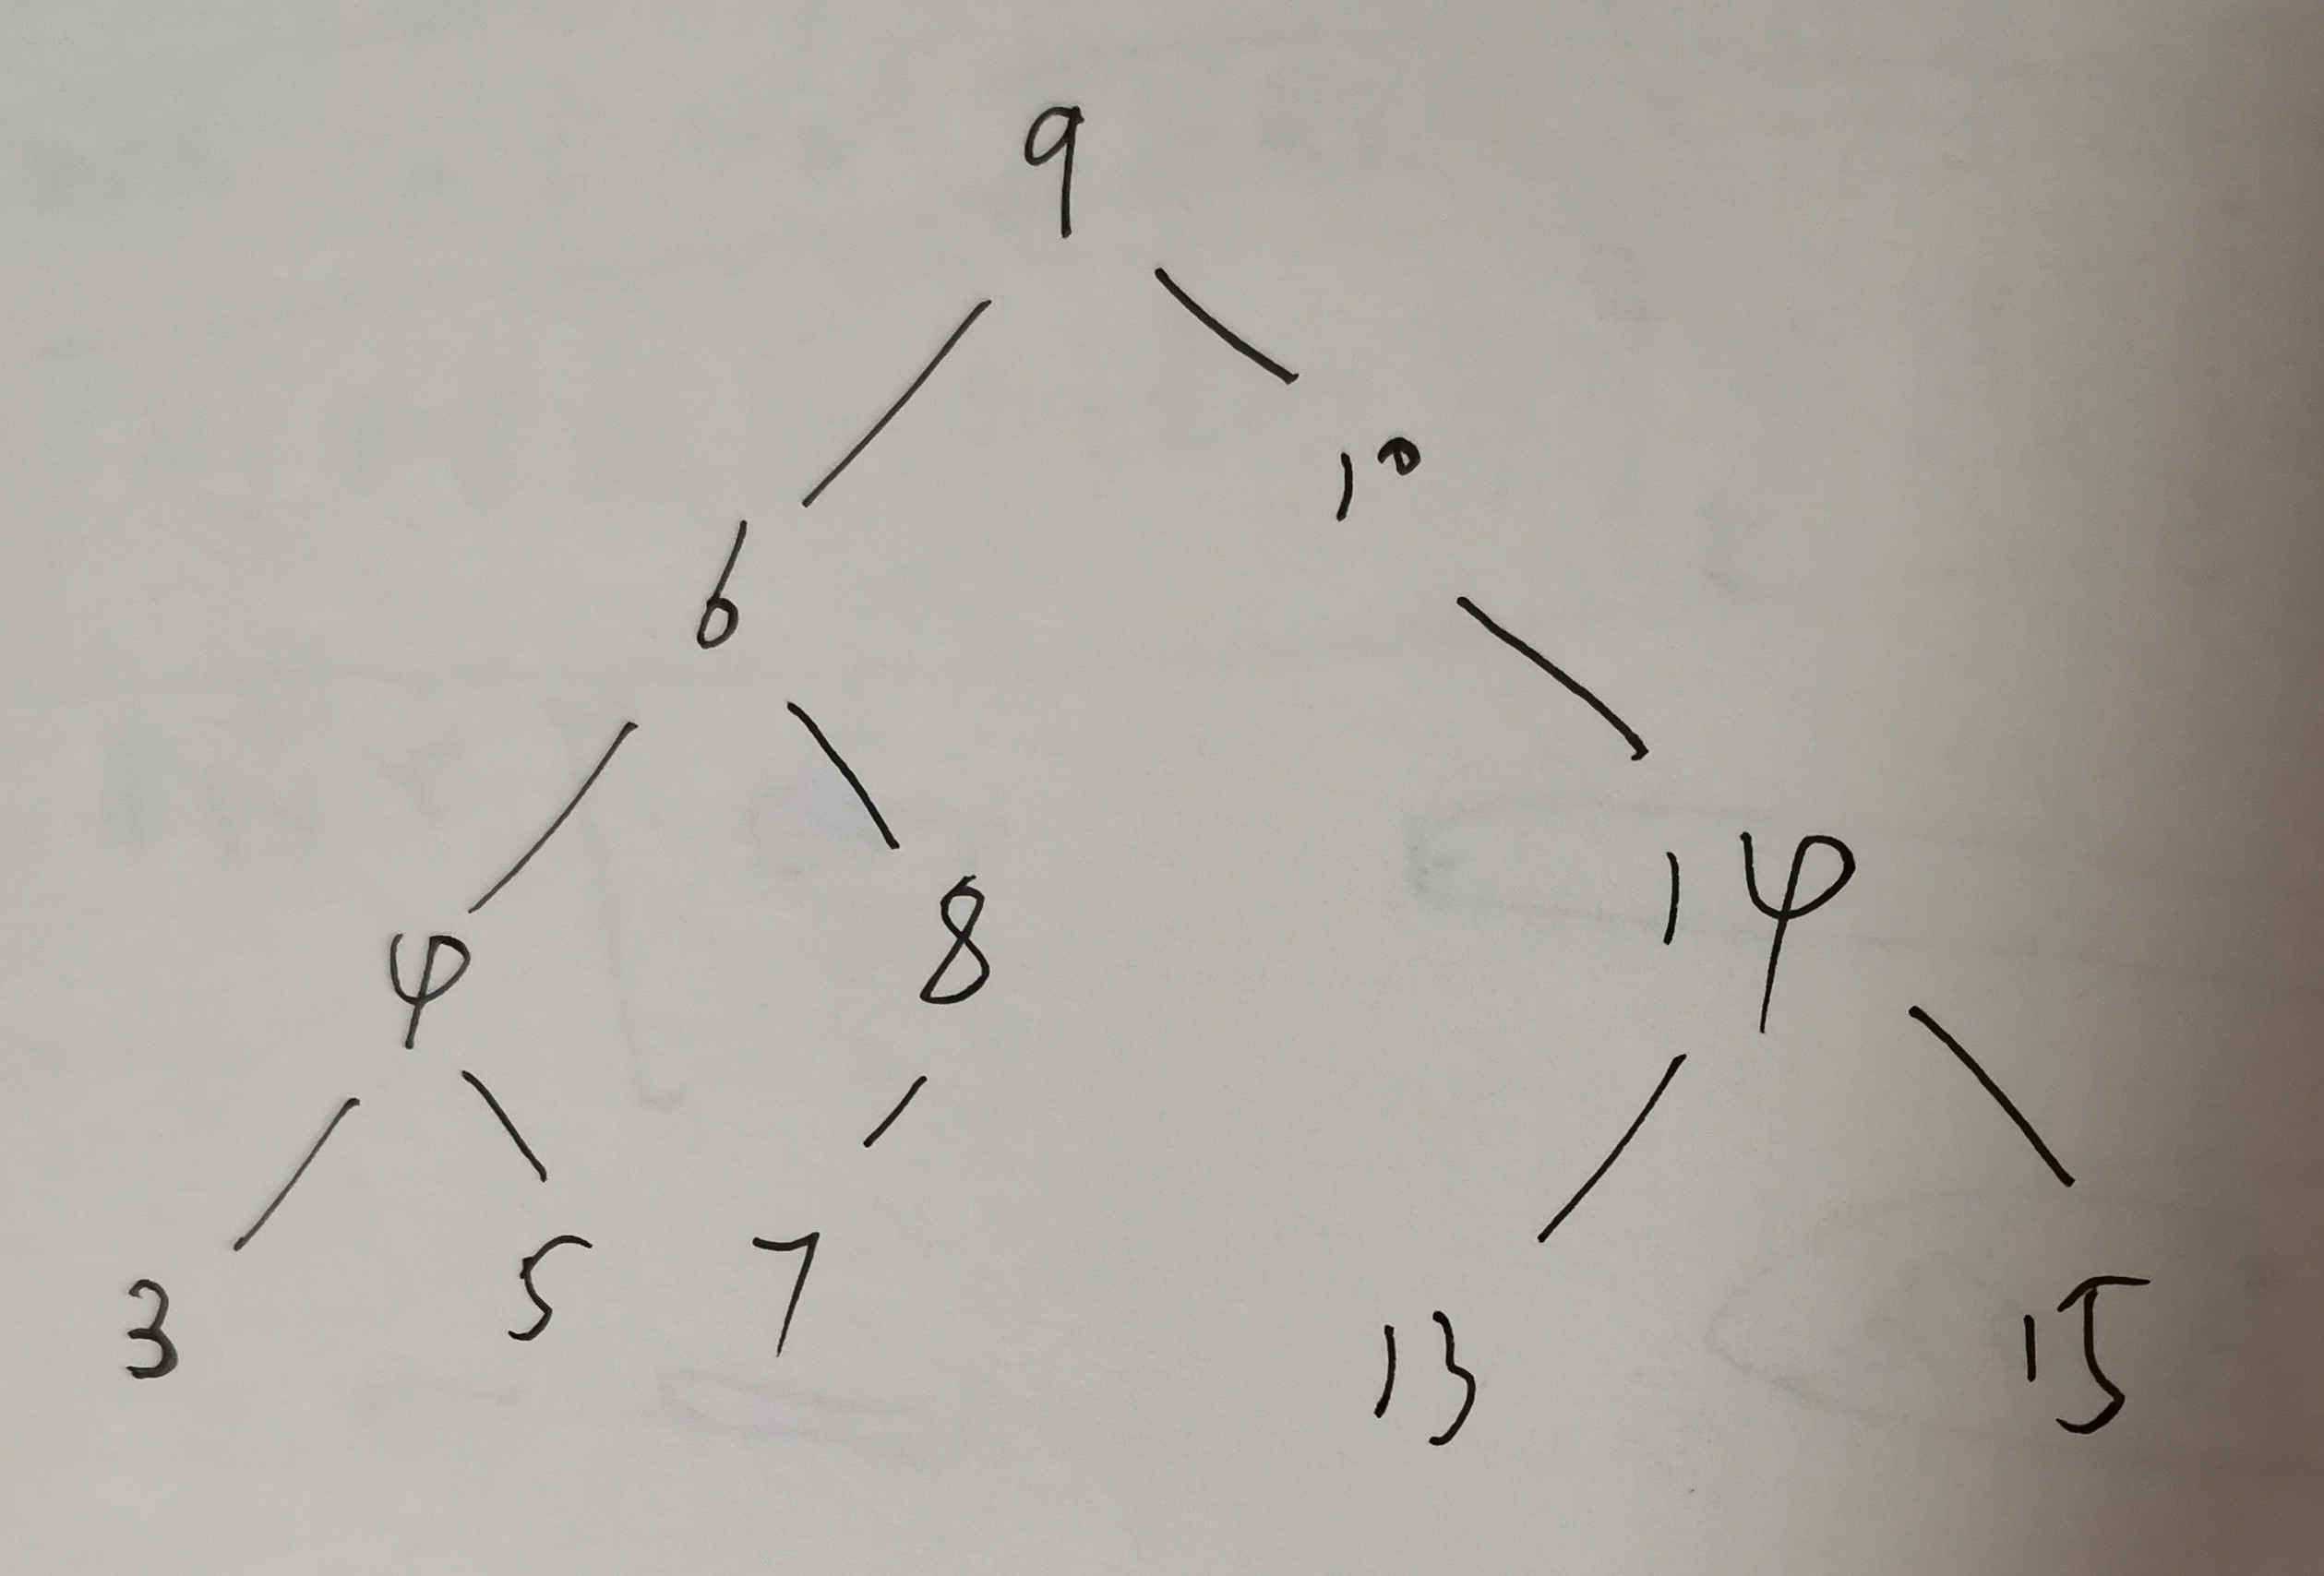 9
6 10
4 8 14
3 5 7 13 15